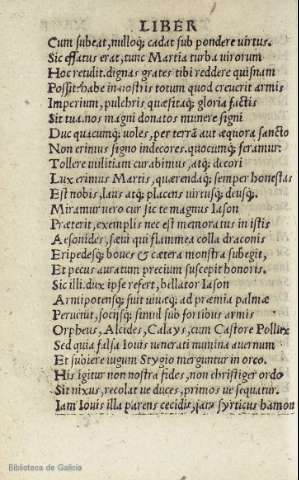 LIBER
Cum subeat, nulloq́; cadat sub pondere virtus.
Sic effatus erat, tunc Martia turba virorum
Hoc retulit. dignas grates tibi reddere quisnam
Possit habe in nostris totum quod creuerit armis
Imperium, pulchris quæsitaq́; gloria factis
Sit tua. nos magni donatos munere signi
Duc quacumq́; uoles, per terrā aut æquora sancto
Non erimus signo indecores. quocumq́; feramur
Tollere uilitiam curabimus, atq́; decori
Lux erimus Martis, quærendaq́; semper honestas
Est nobis, laus atq́; placens virtusq́; deusq́.
Miramur uero cur sic te magnus Iason
Præterit, exemplis nec est memoratus in istis
Aesonides, sæui qui flammea colla draconis
Eripedesq́; boues & cætera monstra subegit,
Et pecus auratum precium suscepit honoris.
Sic illi. dux ipse refert, bellator Iason
Armipotensq́; fuit uiuetq́; ad præmia palmæ
Peruenit, socijsq́; simul sub fortibus armis
Orpheus, Alcides, Calays, cum Castore Pollux
Sed quia falsa Iouis uenerati numina auernum
Et subiere iugum Stygio merguntur in orco.
His igitur non nostra fides, non christiger ordo
Sit nixus, recolat ue duces, primos ue sequatur.
Iam Iouis illa parens cecidit, iam syrticus hamon
Biblioteca de Galicia